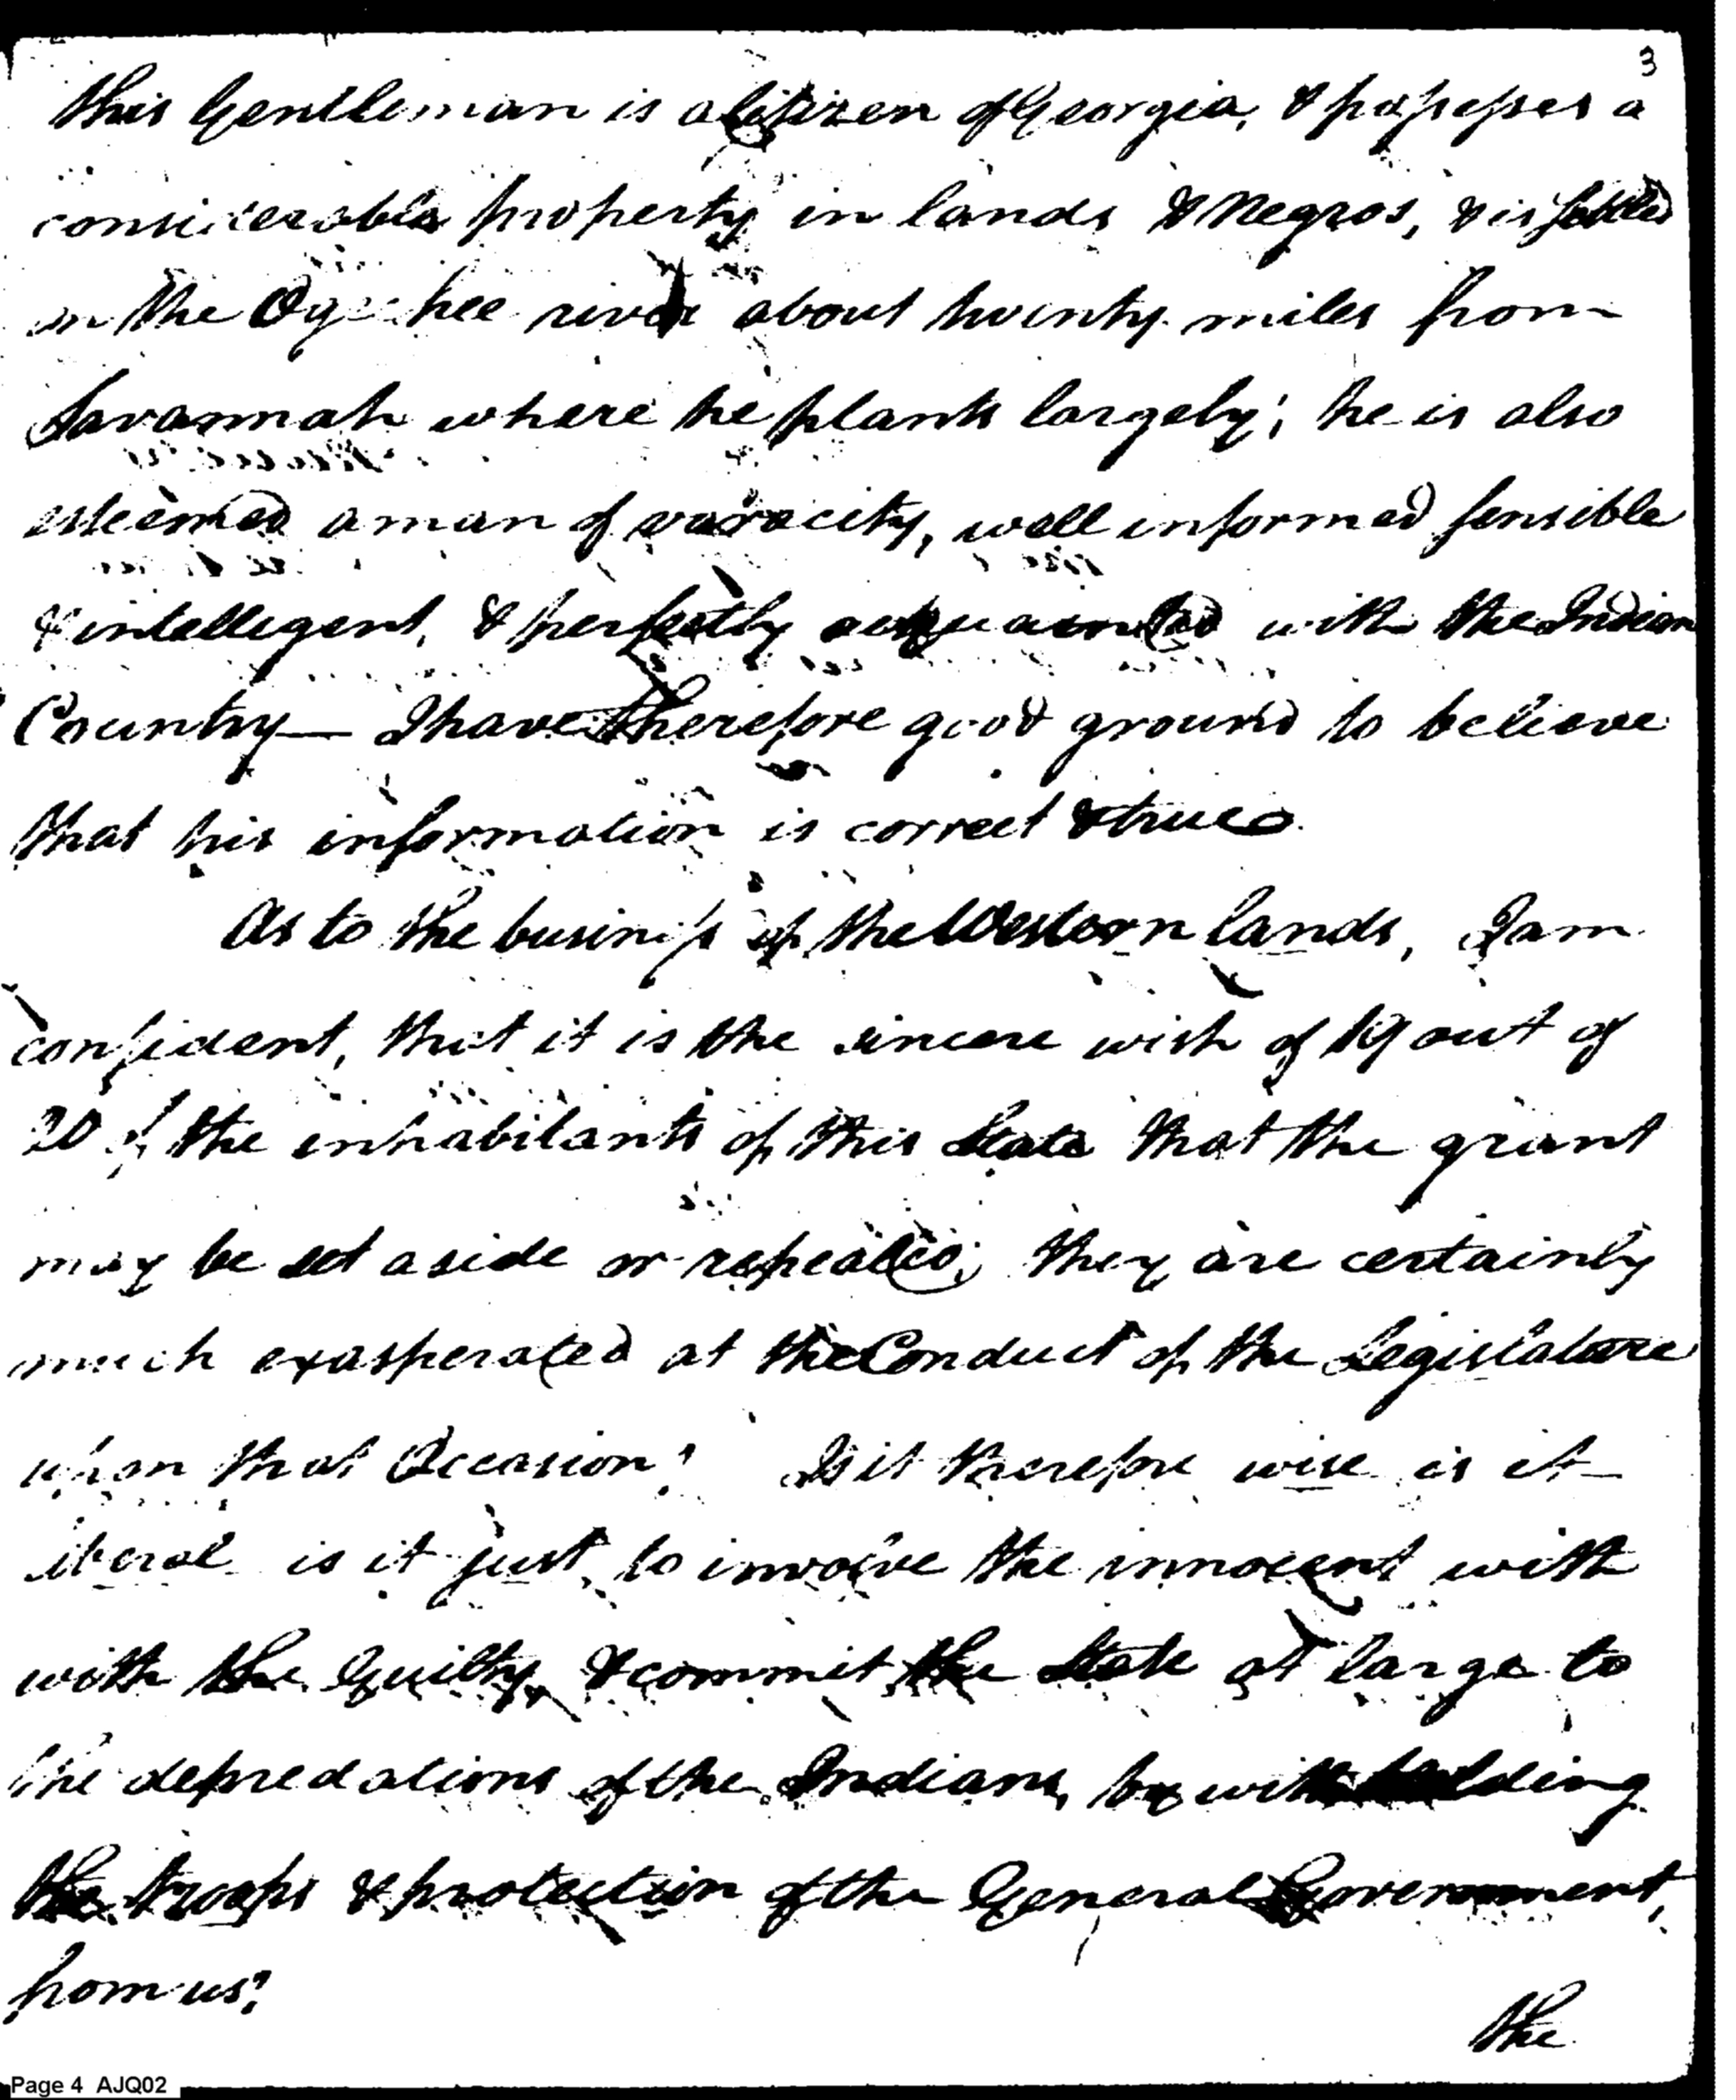 3
this Gentleman is a Citizen of Georgia, & possesses a
considerable property in lands & Negros, & is settled
on the Ogechee river about twenty miles from
Savannah where he plants largely; he is also
esteemed a man of varacity, well informed sensible
& intellegent, & perfectly acquainted with the Indian
Country — I have therefore good ground to believe
that his information is correct & true
As to the business of the Western lands, I am
confident, that it is the sincere wish of 19 out of
20 of the inhabitants of this State that the grant
may be set aside or repealed; they are certainly
much exasperated at the Conduct of the Legislature
upon that Occasion! Is it therefore wise is it
liberal is it just, to involve the innocent with
with the Guilty, & commit the State at large to
the depredations of the Indians, by withholding
the troops & protection of the General Government,
from us?
the
Page 4 AJQ02